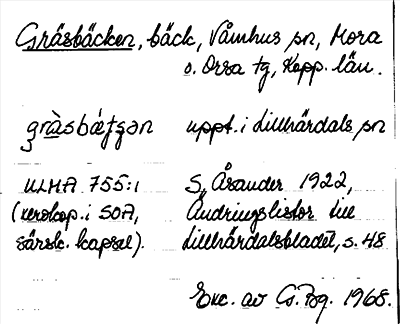 Gråsbäcken, bäck, Våmhus sn, Mora
o. Orsa tg, Kopp. län.
gràsbǽtʃən uppt. i Lillhärdals sn
ULMA 755:1 S. Åsander 1922,
(xerokop. i SOA, Ändringslistor till
särsk. kapsel). Lillhärdalsbladet, s. 48
Exc. av G. Bg. 1968.